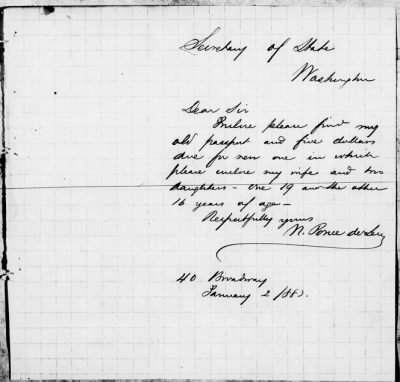 Secretary of State
Washington
Dear Sir
Inclose please find my
old passport and five dollars
due for new one in which
please inclose my wife and two
daughters - One 19 and the other
16 years of age -
Respectfully yours
N. Ponce de Leon
40 Broadway
January 2 188